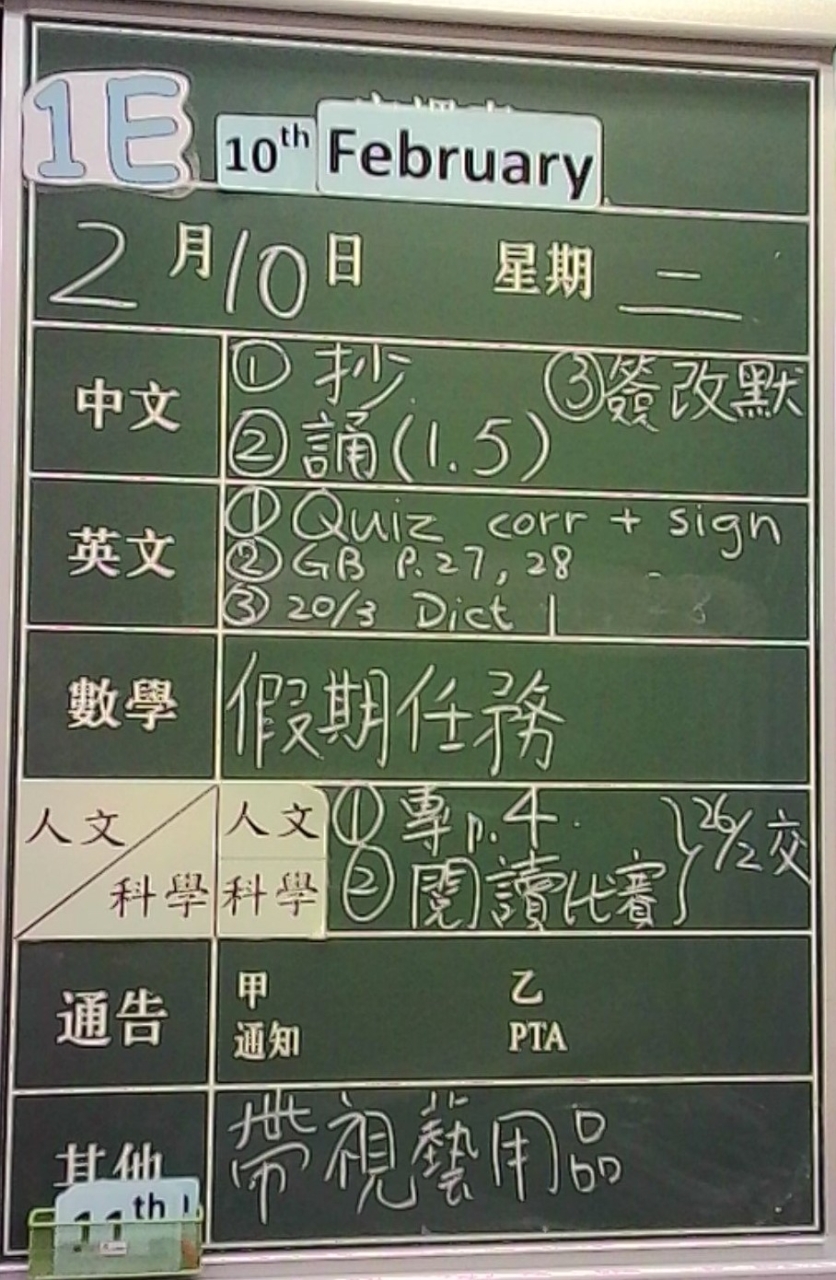 1E
10th February
2月10日 星期二
中文
① 抄 ③簽改默
② 誦(1.5)
英文
① Quiz corr + sign
② GB P.27, 28
③ 20/3 Dict 1
數學
假期任務
人文
科學
人文
科學
① 專p.4
② 閱讀比賽
}26/2交
通告
甲 乙
通知 PTA
其他
帶視藝用品
11th